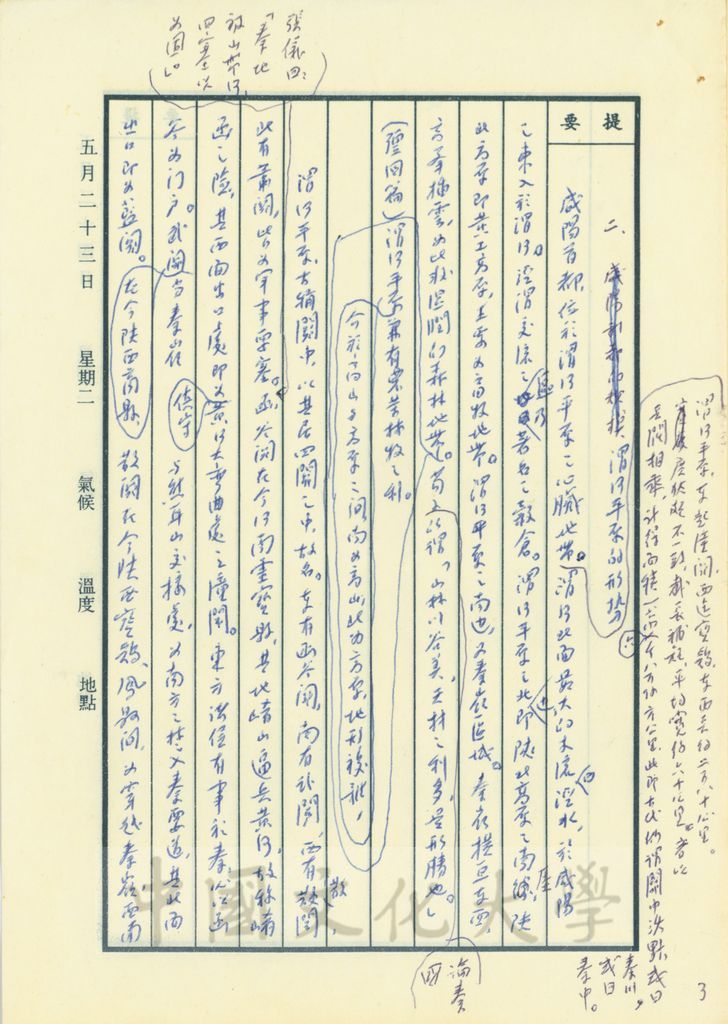 渭河平原,東起潼關,西達寶雞,東西長約二百八十公里。
寬度廣狹起不一致,截長補短,平均寬約六十八公里。若以
長闊相乘,計得面積一六八百八方公里,此即古代所謂關中沃野,或曰
秦川,
或曰
秦中。
3
提要
二、渭河平原的形勢
咸陽首都,位於渭河平原之心臟地帶。渭河北面最大的支流涇水,於咸陽
之東入於渭河。涇渭交流之區,乃著名之穀倉。渭河平原之北,即陝北高原之南緣,陝
北高原即黃土高原,主要為畜牧地帶。渭河平原之南边,為秦嶺區域。秦嶺橫亘東西,
高峯插雲,為比較濕潤的森林地帶。荀子所謂「山林川谷美,天材之利多,是形勝也。」
(彊國篇)渭河平原兼有農業林牧之利。
今於高山与高原之間,南為高山,北为高原,地形複雜,
渭河平原,古稱關中,以其居四關之中,故名。東有函谷關,南有武關,西有散關
北有蕭關,此为軍事要塞。函谷關在今河南靈寶縣,其地崤山逼兵黃河,故称崤
函之險,其西面出口處即为黃河大彎曲處之潼關。東方諸侯有事於秦,必以函
谷为门户。武關当秦嶺与熊耳山交接處,为南方之楚入秦要道,其北面
出口即为藍關。在今陝西商縣 散關在今陝西寶雞、鳳縣間,为穿越秦嶺西南
張儀曰:
「秦地
被山帶河
四塞以
为固」。
論秦
五月二十三日
星期二
氣候
溫度
地點
中國文化大學